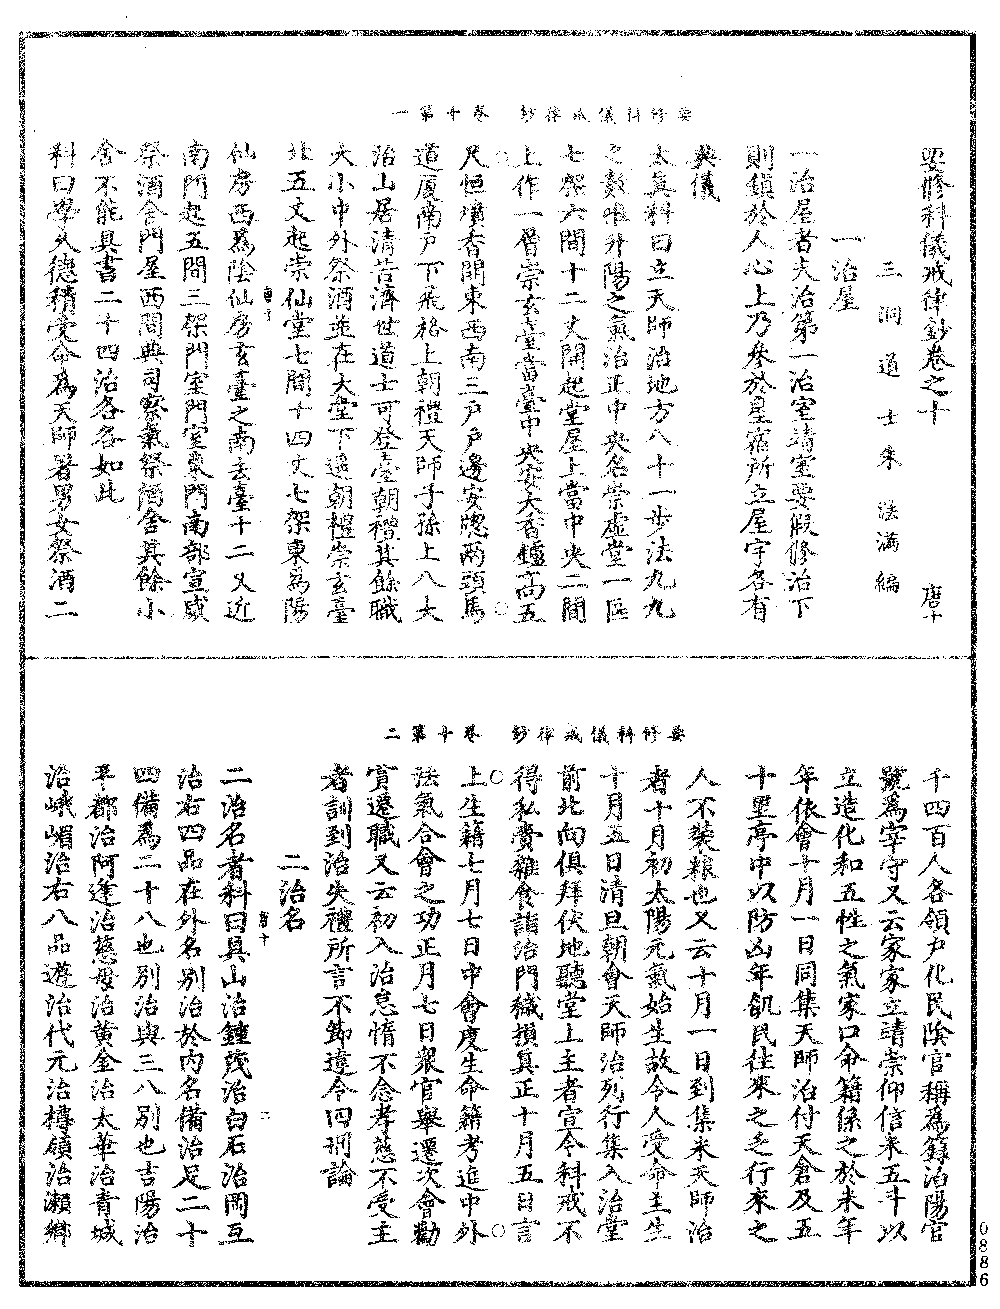 要修科儀戒律鈔卷十 第一
要修科儀戒律鈔卷之十 唐十
三洞道士朱法滿編
一治屋
一治屋者夫治第一治室靖室要假修治下
則鎮於人心上乃參於星宿所立屋宇各有
典儀
太真科曰立天師治地方八十一步法九九
之數唯升陽之氣治正中央名崇虛堂一區
七架六間十二丈開起堂屋上當中央二間
上作一層崇玄臺當臺中央安大香鑪高五
尺恒燌香開東西南三戶戶邊安窓兩頭馬
道厦南戶下飛格上朝禮天師子孫上八大
治山居清苦濟世道士可登臺朝禮其餘職
大小中外祭酒並在大堂下遥朝禮崇玄臺
北五丈起崇仙堂七間十四丈七架東爲陽
仙房西爲陰仙房玄臺之南去臺十二丈近
南門起五間三架門室門室東門南部宣威
祭酒舍門屋西間典司察氣祭酒舍其餘小
舍不能具書二十四治各各如此
科曰學久德積受命爲天師署男女祭酒二
唐十
要修科儀戒律鈔卷十 第二
千四百人各領戶化民陰官稱爲籙治陽官
號爲宰守又云家家立靖崇仰信米五斗以
立造化和五性之氣家口命籍係之於米年
年依會十月一日同集天師治付天倉及五
十里亭中以防凶年飢民往來之乏行來之
人不裝粮也又云十月一日到集米天師治
者十月初太陽元氣始生故令人受命主生
十月五日清旦朝會天師治列行集入治堂
前北向俱拜伏地聽堂上主者宣令科戒不
得私賷雜食詣治門穢損真正十月五日言
上生籍七月七日中會度生命籍考進中外
法氣合會之功正月七日衆官舉遷次會勸
賞遷職又云初入治怠惰不念孝慈不受主
者訓到治失禮所言不節違令四刑論
二治名
二治名者科曰具山治鍾茂治白石治岡互
治右四品在外名別治於內名備治足二十
四備爲二十八也別治與三八別也吉陽治
平都治阿逢治慈母治黄金治太華治青城
治峨嵋治右八品遊治代元治樽領治瀬鄉
唐十 二
0886